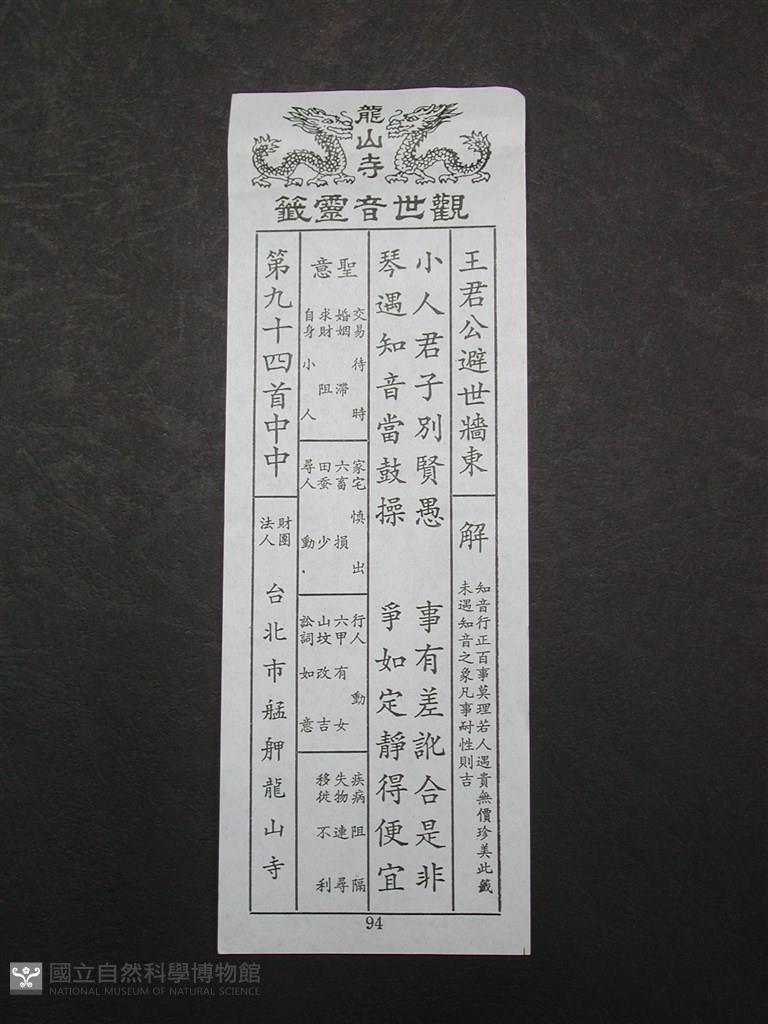 龍山寺
觀世音靈籤
王君公避世牆東
解
知音行正百事莫理若人遇貴無價珍美此籤
未遇知音之象凡事耐性則吉
小人君子別賢愚 事有差訛合是非
琴遇知音當鼓操 爭如定靜得便宜
聖意
交易 待時
婚姻 滯
求財 阻
自身 小人
家宅 慎出
六畜 損
田蚕 少
尋人 動.
行人 動
六甲 有女
山坟 改吉
訟詞 如意
疾病 阻隔
失物 連尋
移徙 不利
第九十四首中中
財團
法人
台北市艋舺龍山寺
94
國立自然科學博物館
NATIONAL MUSEUM OF NATURAL SCIENCE